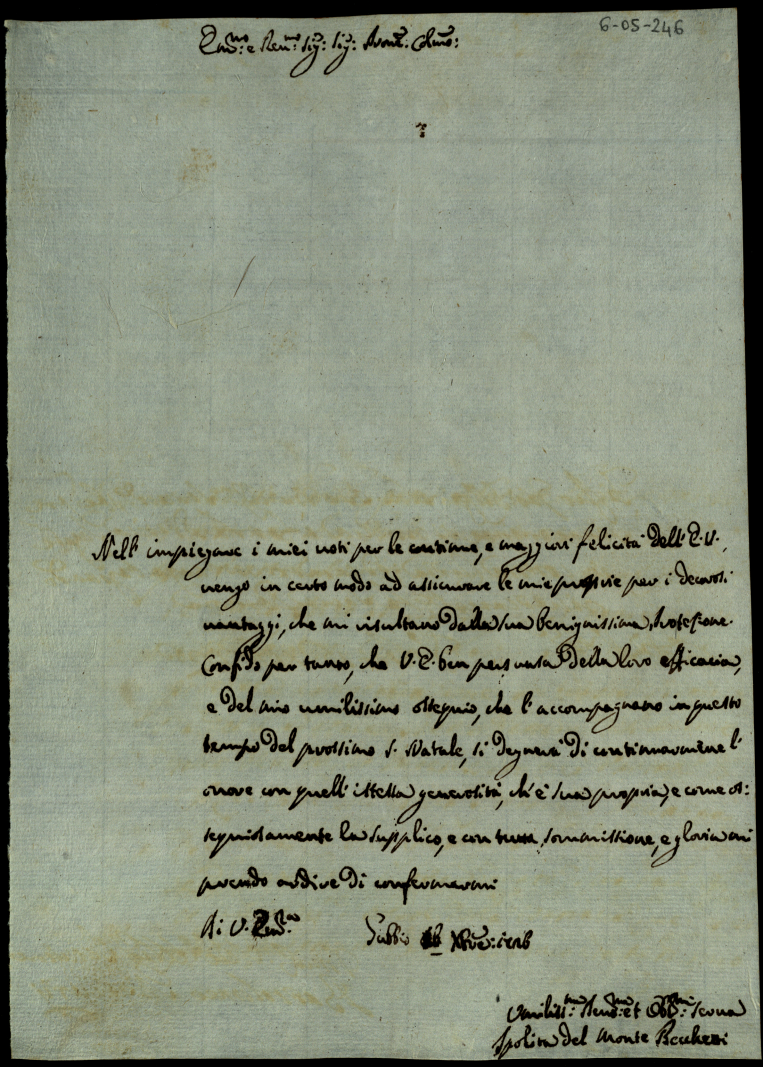 6-05-246
Em.mo e Rev.mo Sig: Sig: Pron. Colmo:
Nell' impiegare i miei voti per le continue, e maggiori felicità dell' E. V.,
vengo in certo modo ad assicurare le mie proprie per i decorosi
vantaggi, che mi risultano dalla sua benignissima Protezione.
Confido per tanto, che V. E. ben persuasa della loro efficacia,
e del mio umilissimo ossequio, che l'accompagnano in questo
tempo del prossimo S. Natale, si degnerà di continuarmene l'
onore con quell' istessa generosità, ch'è sua propria, e come os:
sequiosamente la supplico, e con tutta sommissione, e gloria mi
prendo ardire di confermarmi
Di V. Em.za Gubbio Xbre:
Umiliss.ma Dev.ma et Obb.ma Serva
Ipolita del Monte